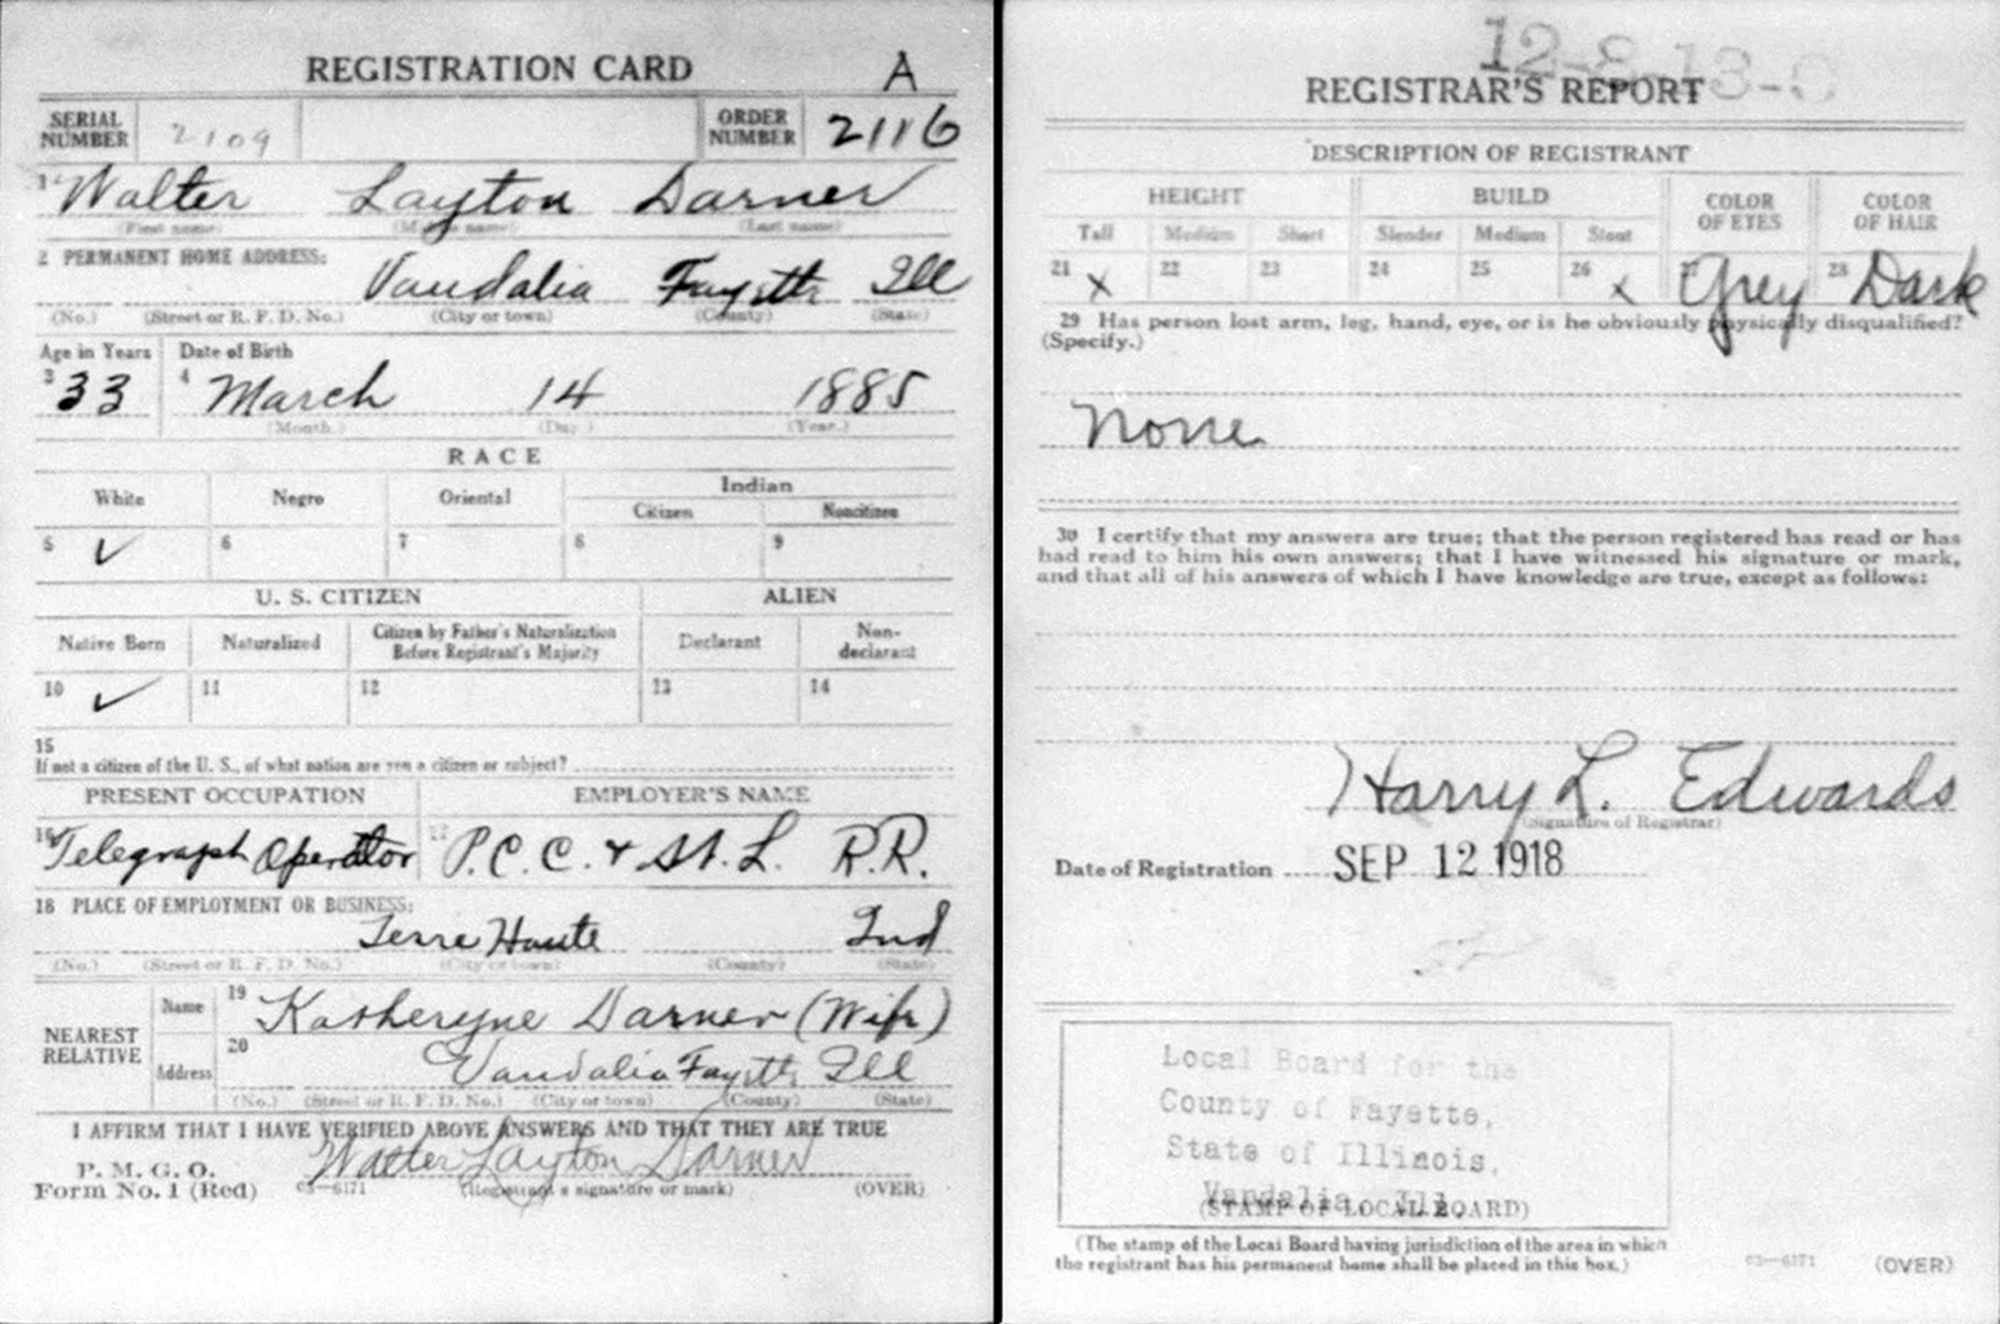 REGISTRATION CARD A
SERIAL NUMBER 2109 ORDER NUMBER 2116
1 Walter Layton Darner
(First name) (Middle name) (Last name)
2 PERMANENT HOME ADDRESS:
Vandalia Fayette Ill
(No.) (Street or R. F. D. No.) (City or town) (County) (State)
Age in Years Date of Birth
3 33 4 March 14 1885
(Month.) (Day.) (Year.)
RACE
White Negro Oriental Indian
Citizen Noncitizen
5 ✓ 6 7 8 9
U. S. CITIZEN ALIEN
Native Born Naturalized Citizen by Father's Naturalization Before Registrant's Majority Declarant Non-declarant
10 ✓ 11 12 13 14
15
If not a citizen of the U. S., of what nation are you a citizen or subject?
PRESENT OCCUPATION EMPLOYER'S NAME
16 Telegraph Operator 17 P. C. C. & St. L. R.R.
18 PLACE OF EMPLOYMENT OR BUSINESS:
Terre Haute Ind
(No.) (Street or R. F. D. No.) (City or town) (County) (State)
NEAREST RELATIVE
Name 19 Katheryne Darner (Wife)
Address 20 Vandalia Fayette Ill
(No.) (Street or R. F. D. No.) (City or town) (County) (State)
I AFFIRM THAT I HAVE VERIFIED ABOVE ANSWERS AND THAT THEY ARE TRUE
P. M. G. O.
Form No. 1 (Red) 03—6171 Walter Layton Darner
(Registrant's signature or mark) (OVER)
12-8-13-C
REGISTRAR'S REPORT
DESCRIPTION OF REGISTRANT
HEIGHT BUILD COLOR OF EYES COLOR OF HAIR
Tall Medium Short Slender Medium Stout
21 x 22 23 24 25 26 x Grey 28 Dark
29 Has person lost arm, leg, hand, eye, or is he obviously physically disqualified?
(Specify.)
None
30 I certify that my answers are true; that the person registered has read or has
had read to him his own answers; that I have witnessed his signature or mark,
and that all of his answers of which I have knowledge are true, except as follows:
Harry L. Edwards
(Signature of Registrar)
Date of Registration SEP 12 1918
Local Board for the
County of Fayette,
State of Illinois,
Vandalia, Ill.
(STAMP OF LOCAL BOARD)
(The stamp of the Local Board having jurisdiction of the area in which
the registrant has his permanent home shall be placed in this box.)
03—6171 (OVER)